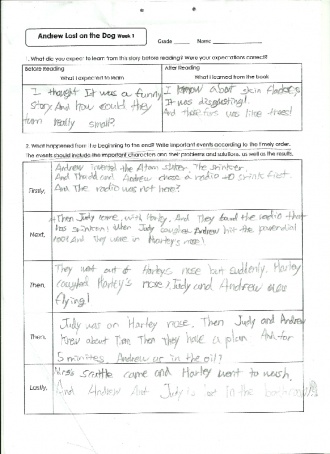 Andrew Lost on the Dog Week 1
Grade Name
1. What did you expect to learn from this story before reading? Were your expectations correct?
Before Reading
After Reading
What I expected to learn
What I learned from the book
I thought It was a funny
story. And how could they
turn really small?
I know about skin flakes
It was disgusting!
And there was like trees!
2. What happened from the beginning to the end? Write important events according to the timely order.
The events should include the important characters and their problems and solutions, as well as the results.
Firstly,
Andrew invented the Atom
And Andrew a radio to shrink first.
And the radio was not here?
Next,
Then Judy came, with Harley. And They found the radio that
has shrinken! When Judy Andrew hit the
And They were in Harley's nose!
Then,
They went out of Harleys nose but suddenly, Harley
Harley's nose, Judy and Andrew
flying!
Then,
Judy was on Harley nose. Then Judy and Andrew
know about Then they have a plan And for
5 minites Andrew in the oil?
Lastly,
came and Harley went to wash.
And Andrew and Judy is in the